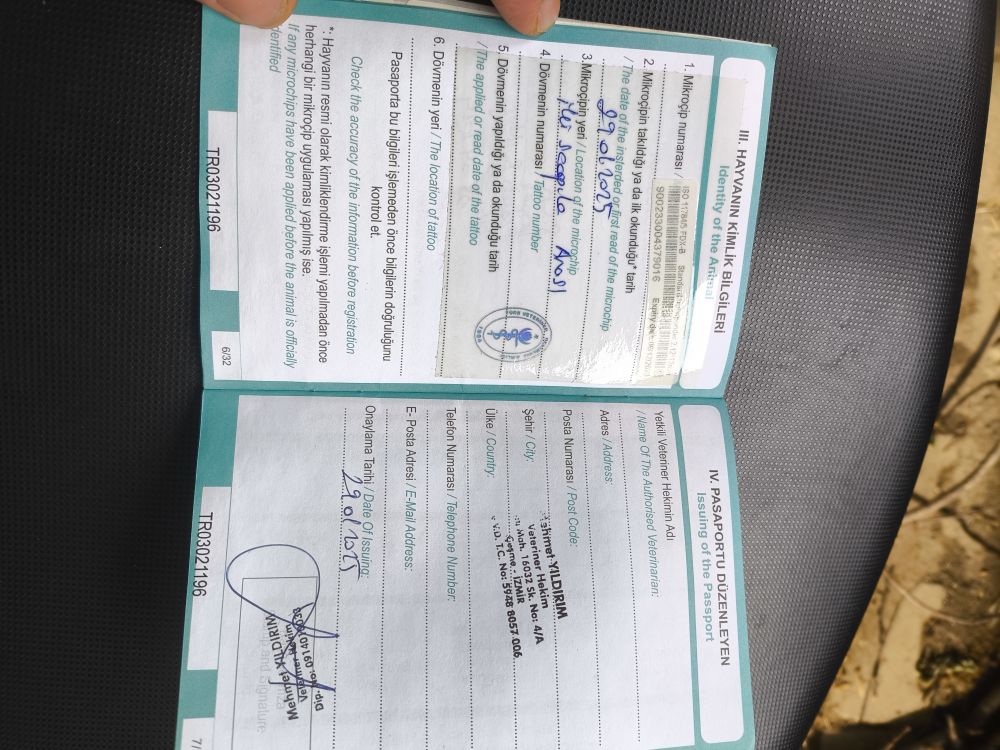 III. HAYVANIN KİMLİK BİLGİLERİ
Identity of the Animal
1. Mikroçip numarası /
ISO 11784/5 FDX-B
900233004379016
Expiry date:
2. Mikroçipin takıldığı ya da ilk okunduğu* tarih
/ The date of the insterded or first read of the microchip
29.01.2025
3.Mikroçipin yeri / Location of the microchip
iki scapula Arası
4. Dövmenin numarası / Tattoo number
5. Dövmenin yapıldığı ya da okunduğu tarih
/ The applied or read date of the tattoo
6. Dövmenin yeri / The location of tattoo
Pasaporta bu bilgileri işlemeden önce bilgilerin doğruluğunu
kontrol et.
Check the accuracy of the information before registration
*: Hayvanın resmi olarak kimliklendirme işlemi yapılmadan önce
herhangi bir mikroçip uygulaması yapılmış ise.
If any microchips have been applied before the animal is officially
identified
TR03021196
6/32
IV. PASAPORTU DÜZENLEYEN
Issuing of the Passport
Yetkili Veteriner Hekimin Adı
/ Name Of The Authorised Veterinarian:
Adres / Address:
Posta Numarası / Post Code:
Şehir / City:
Ülke / Country:
Mehmet YILDIRIM
Veteriner Hekim
Mah. 16032 Sk. No: 4/A
Çeşme - İZMİR
V.D. T.C. No: 5948 8057 006
Telefon Numarası / Telephone Number:
E- Posta Adresi / E-Mail Address:
Onaylama Tarihi / Date Of Issuing:
29.01.2025
Mehmet YILDIRIM
Veteriner Hekim
and Signature
TR03021196
7/